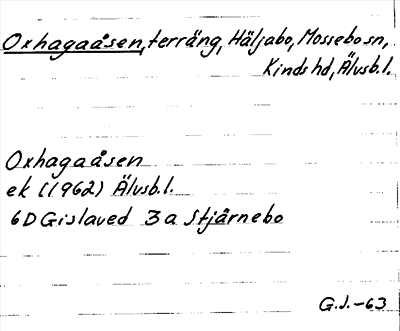 Oxhagaåsen, terräng, Häljabo, Mossebo sn,
Kinds hd, Älvsb. l.
Oxhagaåsen
ek (1962) Älvsb. l.
6D Gislaved 3a Stjärnebo
G.J. -63